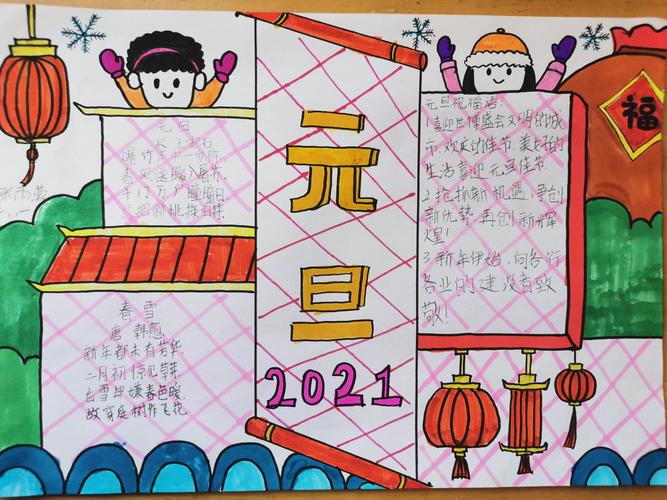 元日
宋 王安石
爆竹声中一岁除,
春风送暖入屠苏,
千门万户曈曈日,
总把新桃换旧符.
春雪
唐 韩愈
新年都未有芳华,
二月初惊见草芽,
白雪却嫌春色晚,
故穿庭树作飞花.
元
旦
2021
元旦祝福语:
1.喜迎世博盛会文明的城
市,欢庆的佳节,美好的
生活喜迎 元旦佳节.
2.抢抓新机遇,争创
新优势,再创新辉
煌!
3.新年伊始,向各行
各业的建设者致
敬!
福